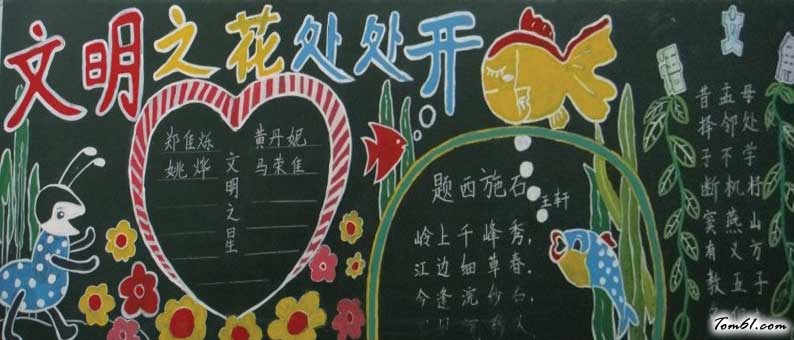 文明之花处处开
郑佳烁 黄丹妮
姚烨 马荣佳
文明之星
题西施石
王轩
岭上千峰秀，
江边细草春．
今逢浣纱石，
文
昔孟母
择邻处
子不学
断机杼
窦燕山
有义方
教五子
Tom61.com